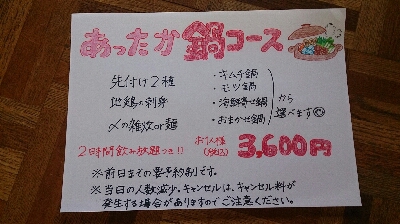 あったか鍋コース
先付け2種
地鶏の刺身
〆の雑炊or麺
・キムチ鍋
・モツ鍋
・海鮮寄せ鍋
・おまかせ鍋
から
選べます
2時間飲み放題つき!!
お1人様
(税込)
3,600円
※前日までの要予約制です。
※当日の人数減少、キャンセルは、キャンセル料が
発生する場合がありますのでご注意ください。